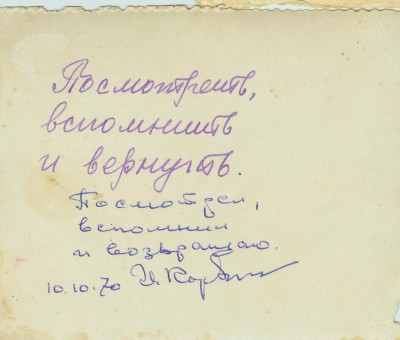 Посмотреть,
вспомнить
и вернуть.
Посмотрел,
вспомнил
и возвращаю.
10.10.70